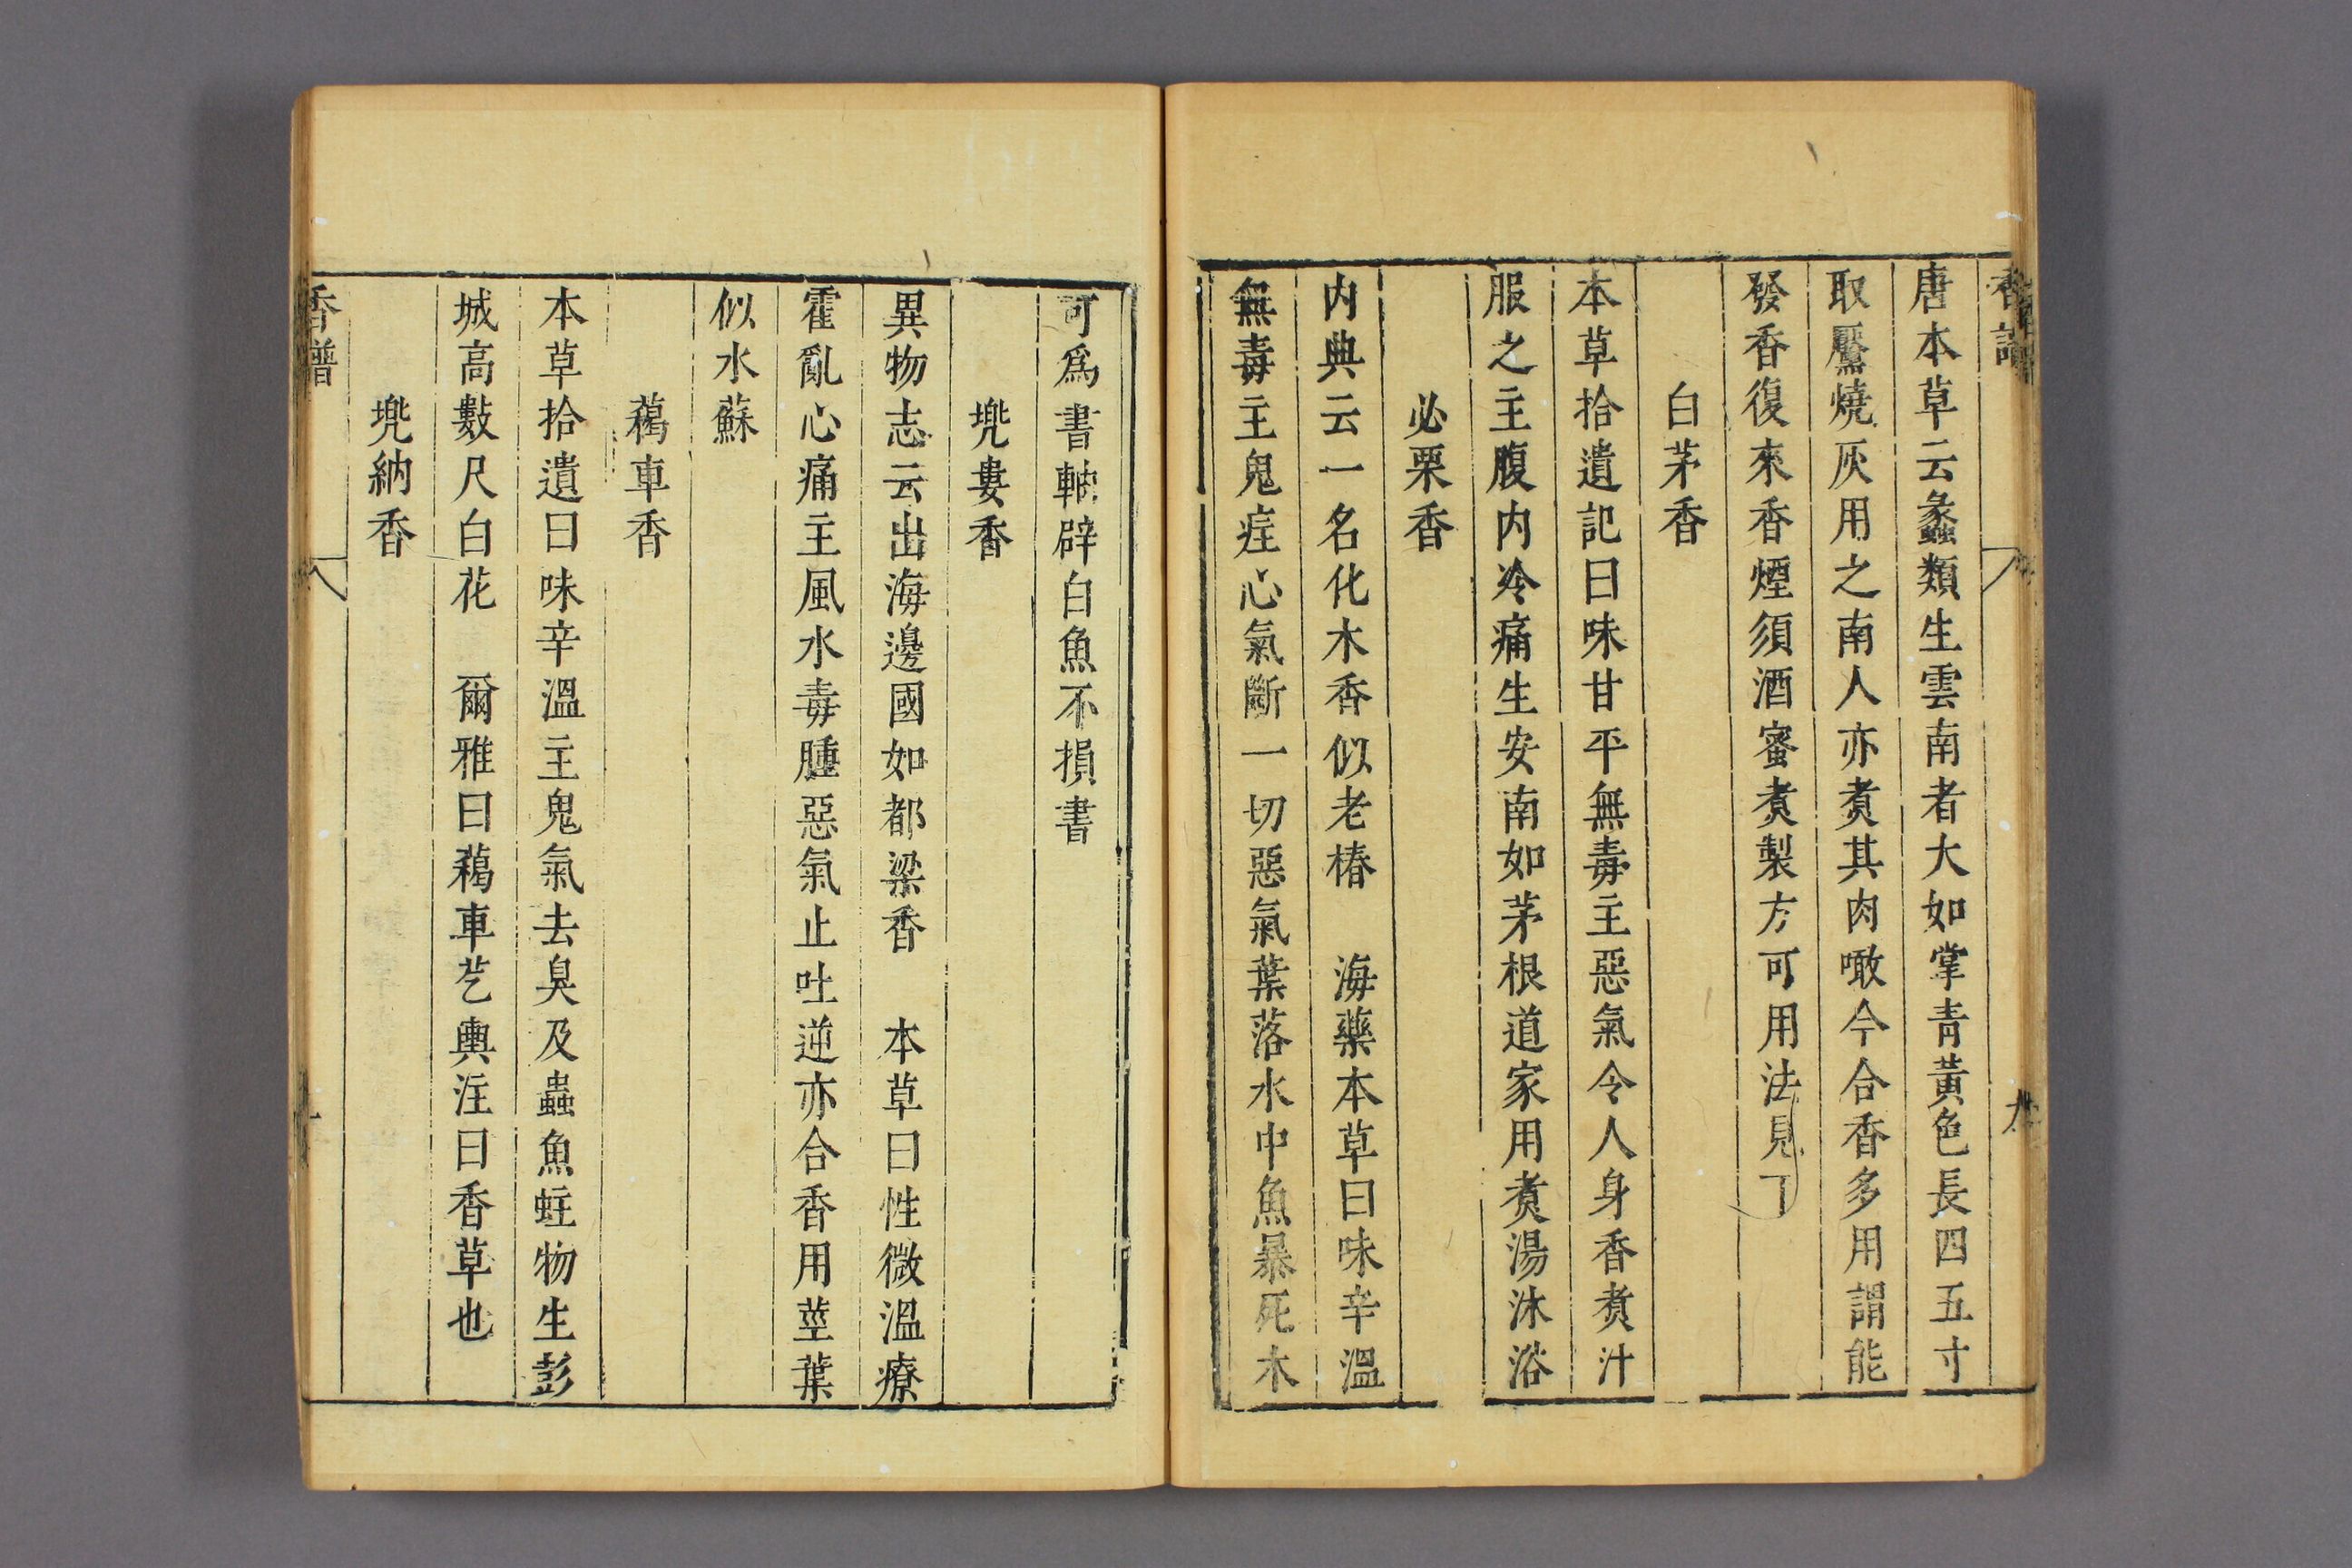 香譜
九
唐本草云蠡類生雲南者大如掌青黃色長四五寸
取黶燒灰用之南人亦煑其肉噉今合香多用謂能
發香復來香煙須酒蜜煑製方可用法見丁
白茅香
本草拾遺記曰味甘平無毒主惡氣令人身香煑汁
服之主腹内冷痛生安南如茅根道家用煑湯沐浴
必栗香
内典云一名化木香似老椿　海藥本草曰味辛溫
無毒主鬼疰心氣斷一切惡氣葉落水中魚暴死木
可爲書軸辟白魚不損書
兠婁香
異物志云出海邊國如都梁香　本草曰性微溫療
霍亂心痛主風水毒腫惡氣止吐逆亦合香用莖葉
似水蘇
藒車香
本草拾遺曰味辛溫主鬼氣去臭及蟲魚蛀物生彭
城高數尺白花　爾雅曰藒車芞輿注曰香草也
兠納香
香譜